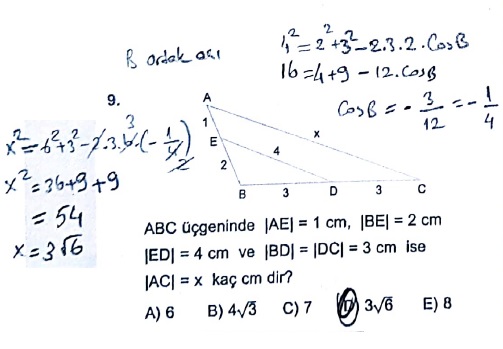 B ortak açı
4² = 2² + 3² - 2.3.2.CosB
16 = 4+9 - 12.cosB
CosB = - 3/12 = - 1/4
x² = 6² + 3² - 2.3.6.(- 1/4)
3
2
x² = 36+9+9
= 54
x = 3√6
9.
A
1
E
x
4
2
B
3
D
3
C
ABC üçgeninde |AE| = 1 cm, |BE| = 2 cm
|ED| = 4 cm ve |BD| = |DC| = 3 cm ise
|AC| = x kaç cm dir?
A) 6 B) 4√3 C) 7 D) 3√6 E) 8